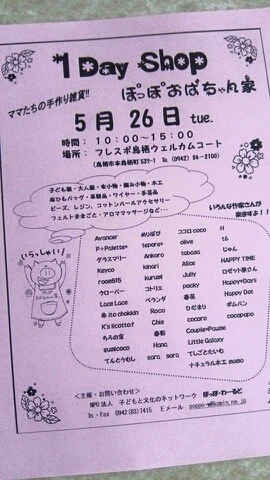 1 Day Shop
ママたちの手作り雑貨!!
ぽっぽおばちゃん家
5月26日 tue.
時間：10:00～15:00
場所：フレスポ鳥栖ウェルカムコート
(鳥栖市本鳥栖町537-1 Tel (0942) 84-2100)
子ども服・大人服・布小物・編み小物・木工
麻ひもバッグ・革製品・ワイヤー手芸品
ビーズ、レジン、コットンパールアクセサリー
フェルトままごと・アロママッサージなど・・・
いろんな作家さんが
来ますよ!!
いらっしゃい!
Avancer めりぼび ココロ coco H
P☆Palette* tepore* olive t.6
グラスマリー Ankoro tabasa じゃん
Keyco kinari Alice HAPPY TIME
room515 kurumi Jully ロゼット原さん
クローバー コトリエ pocky Happy*Days
Lace Lace ベランダ 春花 Happy Dot
糸 ito chokkin Roco ひだまり ポムパン
K's licotta f Chie cocoro cocopopo
もろの宙 春彩 Couple*Paume
sumicoco Hana Little Galaxy
てんとうむし sara sara てしごとたいむ
ナチュラル木工 momo
<主催・お問い合わせ>
NPO法人 子どもと文化のネットワーク ぽっぽ・わーるど
Tel・Fax 0942(83)7415 Eメール